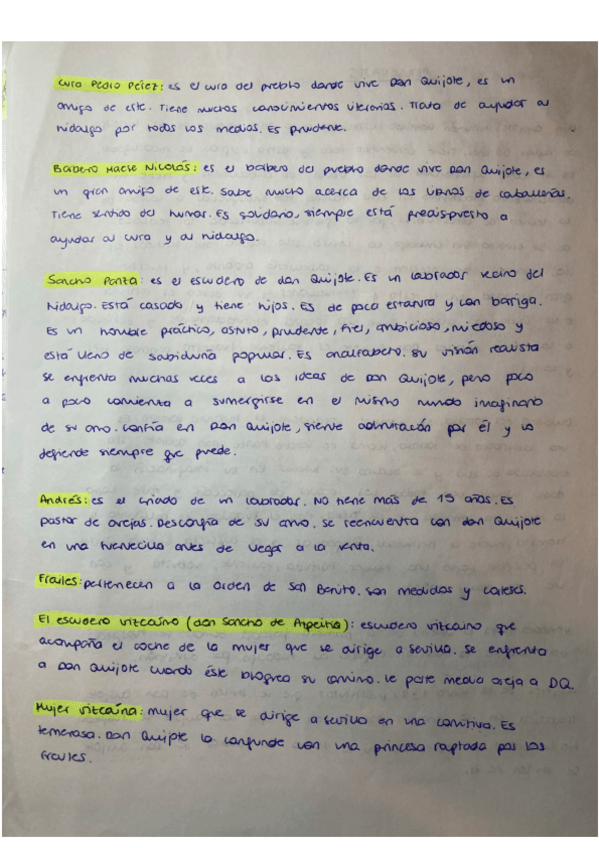 Cura Pedro Pérez: es el cura del pueblo donde vive Don Quijote, es un
amigo de este. Tiene muchos conocimientos literarios. Trata de ayudar al
hidalgo por todos los medios. Es prudente.
Barbero Maese Nicolás: es el barbero del pueblo donde vive Don Quijote, es
un gran amigo de este. Sabe mucho acerca de los libros de caballerías.
Tiene sentido del humor. Es solidario, siempre está predispuesto a
ayudar al cura y al hidalgo.
Sancho Panza: es el escudero de don Quijote. Es un labrador vecino del
Hidalgo. Está casado y tiene hijos. Es de poca estatura y con barriga.
Es un hombre práctico, astuto, prudente, fiel, ambicioso, miedoso y
está lleno de sabiduría popular. Es analfabeto. Su visión realista
se enfrenta muchas veces a las ideas de Don Quijote, pero poco
a poco comienza a sumergirse en el mismo mundo imaginario
de su amo. Confía en Don Quijote, siente admiración por él y lo
defiende siempre que puede.
Andrés: es el criado de un labrador. No tiene más de 15 años. Es
pastor de ovejas. Desconfía de su amo. Se reencuentra con don Quijote
en una fuentecilla antes de llegar a la venta.
Frailes: pertenecen a la orden de San Benito. Son medidos y corteses.
El escudero vizcaíno (don Sancho de Azpeitia): escudero vizcaíno que
acompaña el coche de la mujer que se dirige a Sevilla. Se enfrenta
a Don Quijote cuando éste bloquea su camino. Le parte media oreja a DQ.
Mujer vizcaína: mujer que se dirige a Sevilla en una comitiva. Es
temerosa. Don Quijote la confunde con una princesa raptada por los
frailes.